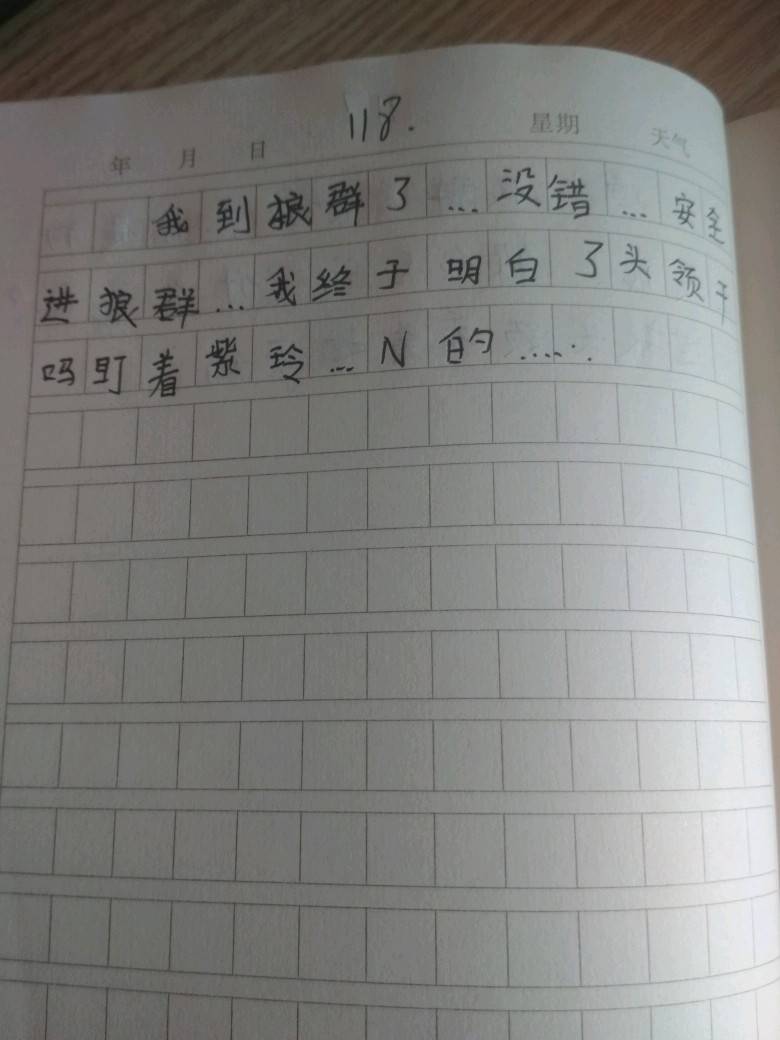 118.
年 月 日 星期 天气
我到狼群了…没错…安全
进狼群…我终于明白了头领干
吗盯着紫玲…N的……